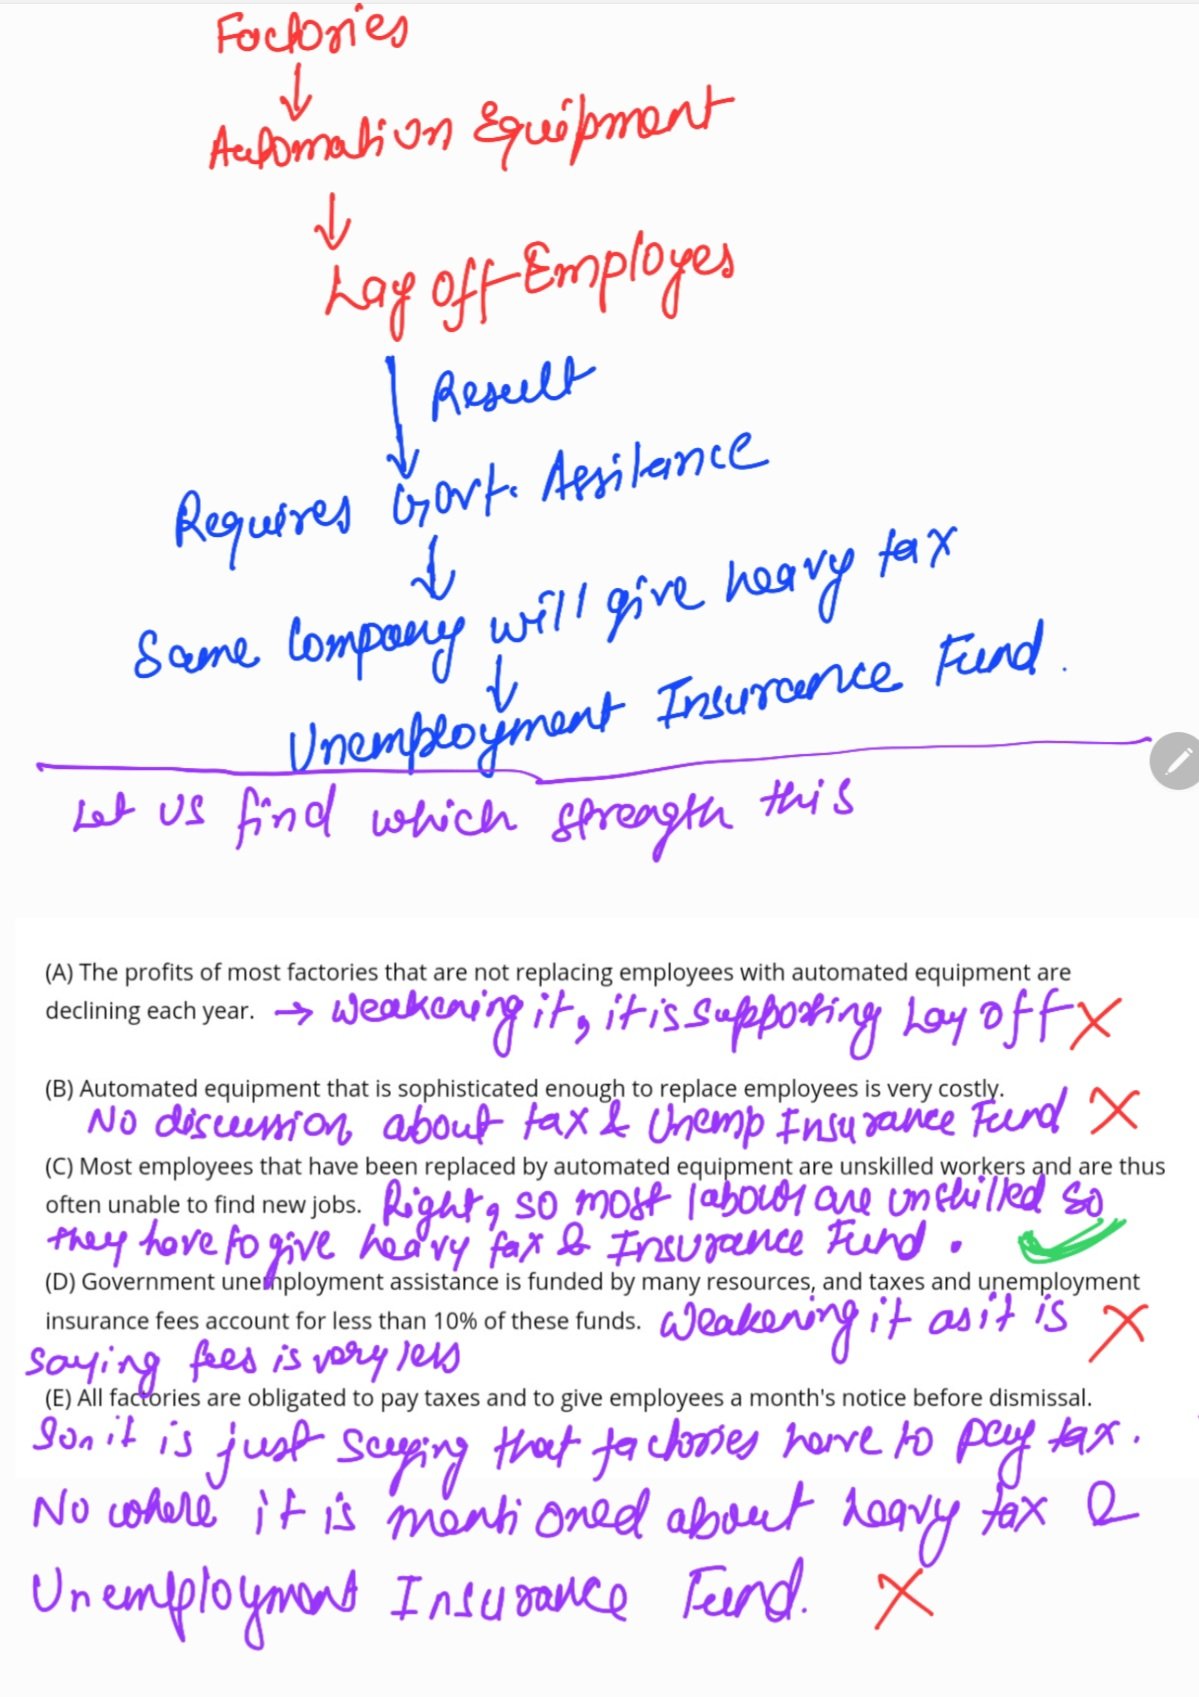 Factories
Automation Equipment
Lay off Employes
Result
Requires Govt. Assitance
Same Company will give heavy tax
Unemployment Insurance Fund.
Let us find which strength this
(A) The profits of most factories that are not replacing employees with automated equipment are
declining each year. → Weakening it, it is supporting Lay off X
(B) Automated equipment that is sophisticated enough to replace employees is very costly.
No discussion about tax & Unemp Insurance Fund X
(C) Most employees that have been replaced by automated equipment are unskilled workers and are thus
often unable to find new jobs. Right, so most labours are unskilled so
they have to give heavy tax & Insurance Fund.
(D) Government unemployment assistance is funded by many resources, and taxes and unemployment
insurance fees account for less than 10% of these funds. Weakening it as it is X
saying fees is very less
(E) All factories are obligated to pay taxes and to give employees a month's notice before dismissal.
it is just saying that factories have to pay tax.
No where it is mentioned about heavy tax &
Unemployment Insurance Fund. X